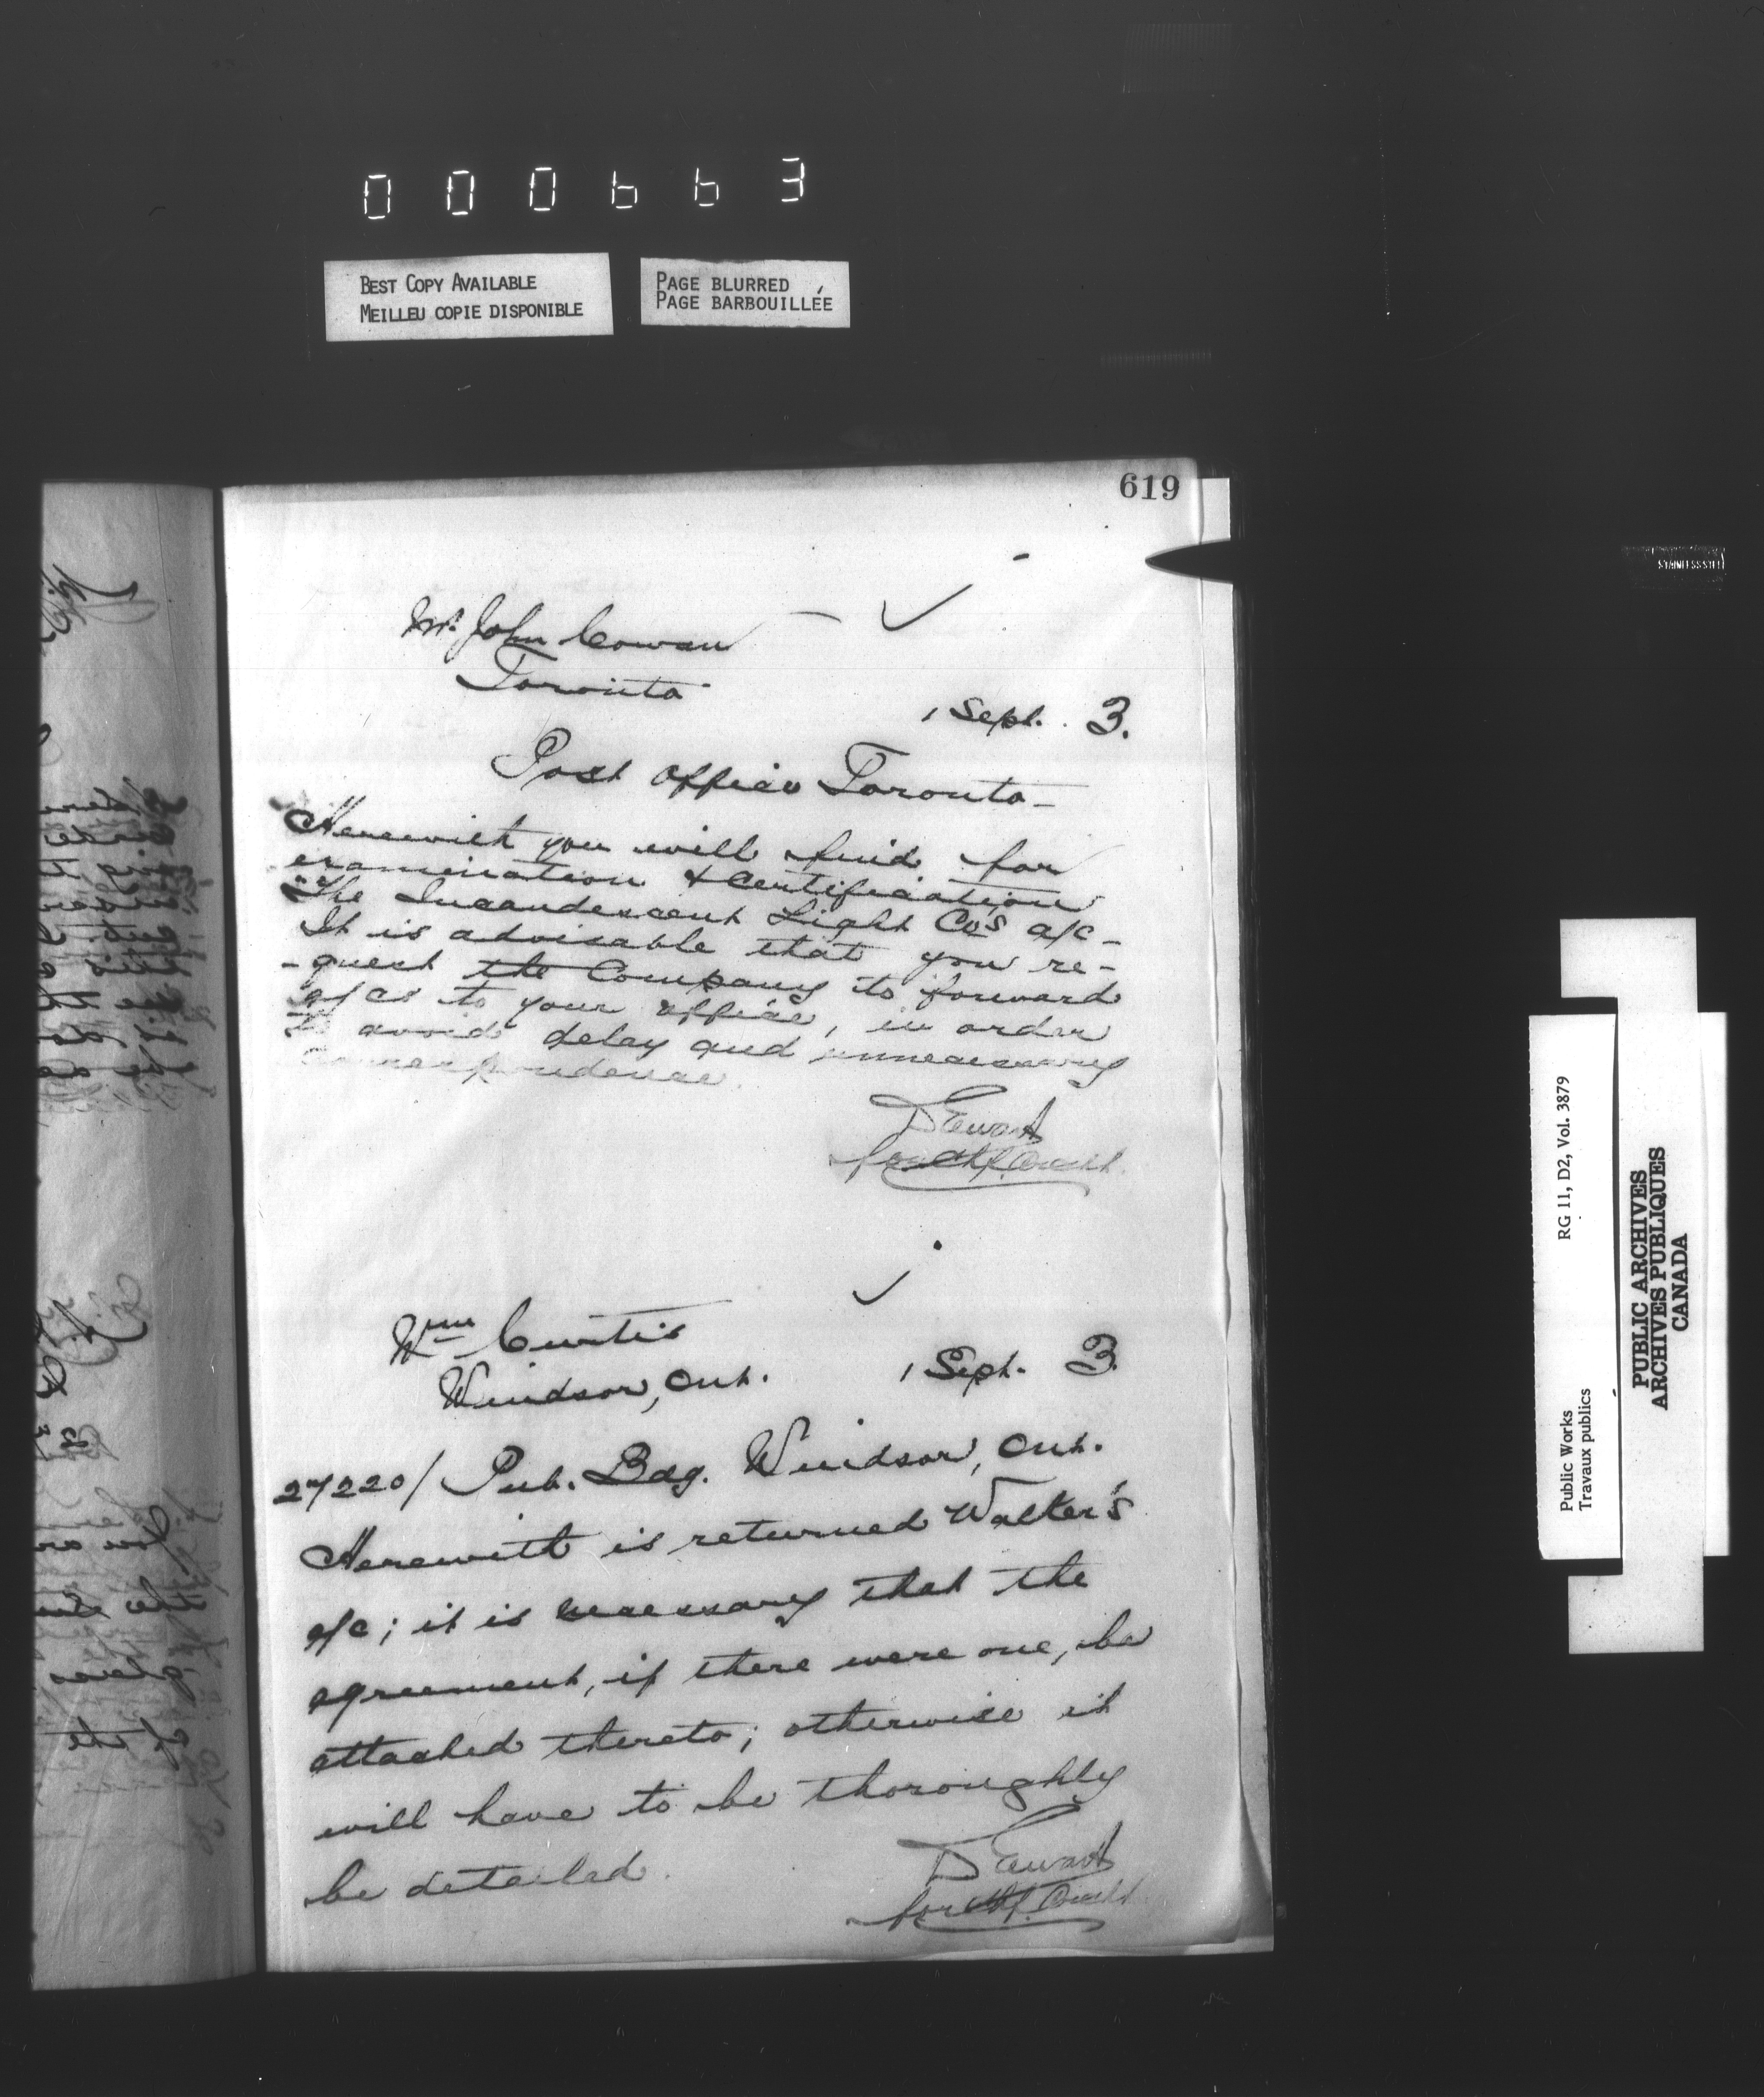 000663
BEST COPY AVAILABLE
MEILLEU COPIE DISPONIBLE
PAGE BLURRED
PAGE BARBOUILLÉE
619
Mr. John Cowan
Toronto
1 Sept. 3.
Post Office Toronto-
Herewith you will find for
examination & certification
The Incandescent Light Co's a/c-
It is advisable that you re-
-quest the Company to forward
a/cs to your office, in order
to avoid delay and unnecessary
correspondence.
D Ewart
for Chf. Archt.
Wm Curtis
Windsor, Ont.
1 Sept. 3.
27220/ Pub. Bdg. Windsor, Ont.
Herewith is returned Walker's
a/c; it is necessary that the
agreement, if there were one, be
attached thereto; otherwise it
will have to be thoroughly
be detailed.
D Ewart
for Chf. Archt.
Public Works
Travaux publics
RG 11, D2, Vol. 3879
PUBLIC ARCHIVES
ARCHIVES PUBLIQUES
CANADA